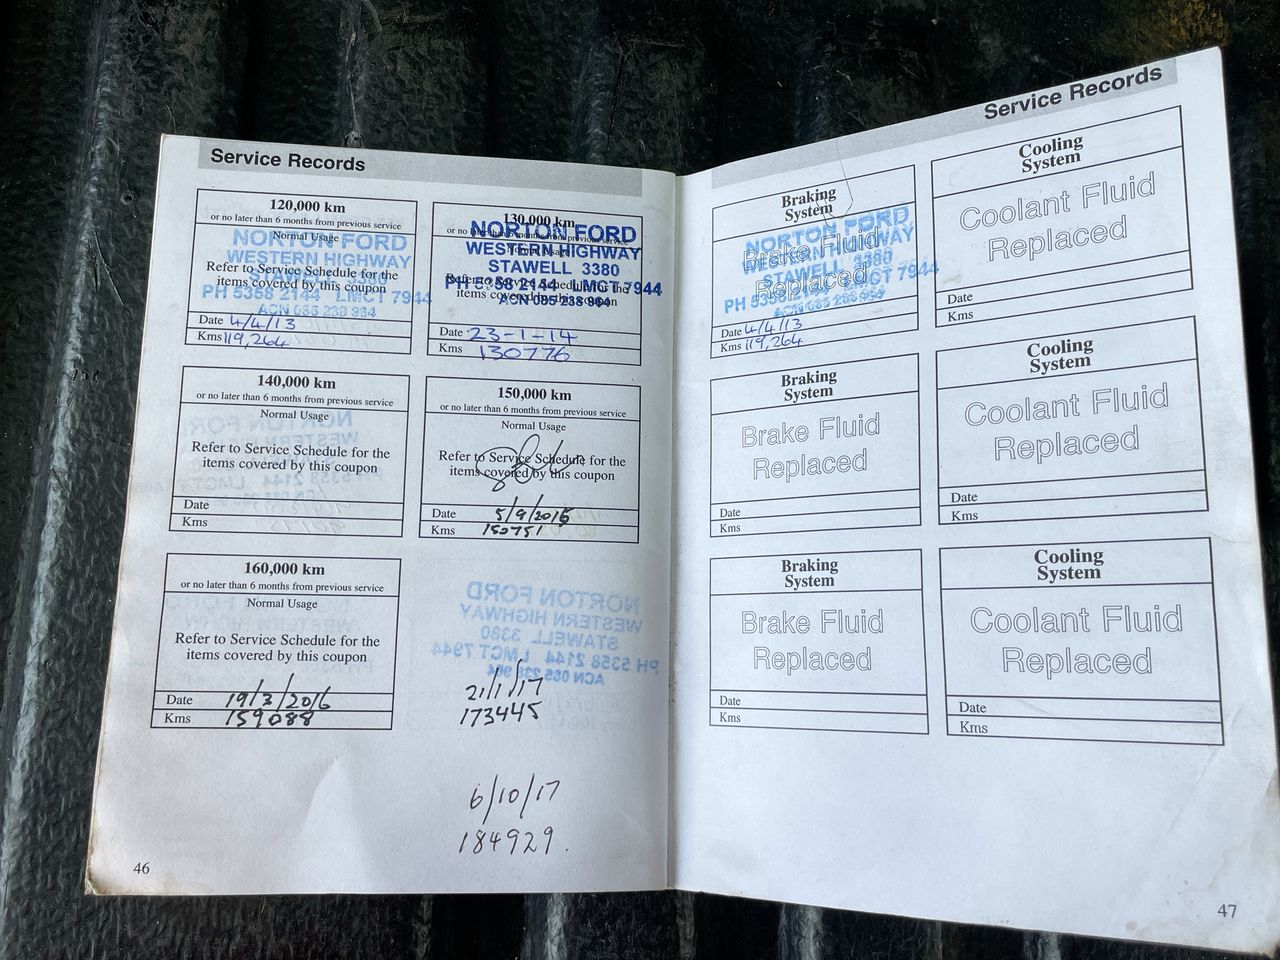 Service Records
120,000 km
or no later than 6 months from previous service
Normal Usage
NORTON FORD
WESTERN HIGHWAY
Refer to Service Schedule for the
STAWELL 3380
items covered by this coupon
PH 5358 2144 LMCT 7944
ACN 085 238 964
Date 4/4/13
Kms 119,264
130,000 km
NORTON FORD
or no later than 6 months from previous service
Normal Usage
WESTERN HIGHWAY
STAWELL 3380
Refer to Service Schedule for the
PH 5358 2144 LMCT 7944
items covered by this coupon
ACN 085 238 964
Date 23-1-14
Kms 130776
140,000 km
or no later than 6 months from previous service
Normal Usage
Refer to Service Schedule for the
items covered by this coupon
Date
Kms
150,000 km
or no later than 6 months from previous service
Normal Usage
Refer to Service Schedule for the
items covered by this coupon
Date
Kms 150751
160,000 km
or no later than 6 months from previous service
Normal Usage
Refer to Service Schedule for the
items covered by this coupon
Date 19/3/2016
Kms 159088
NORTON FORD
WESTERN HIGHWAY
STAWELL 3380
PH 5358 2144 LMCT 7944
ACN 085 238 964
21/1/17
173445
6/10/17
184929.
46
Service Records
Braking
System
NORTON FORD
Brake Fluid
WESTERN HIGHWAY
STAWELL 3380
Replaced
PH 5358 2144 LMCT 7944
ACN 085 238 964
Date 4/4/13
Kms 119,264
Cooling
System
Coolant Fluid
Replaced
Date
Kms
Braking
System
Brake Fluid
Replaced
Date
Kms
Cooling
System
Coolant Fluid
Replaced
Date
Kms
Braking
System
Brake Fluid
Replaced
Date
Kms
Cooling
System
Coolant Fluid
Replaced
Date
Kms
47